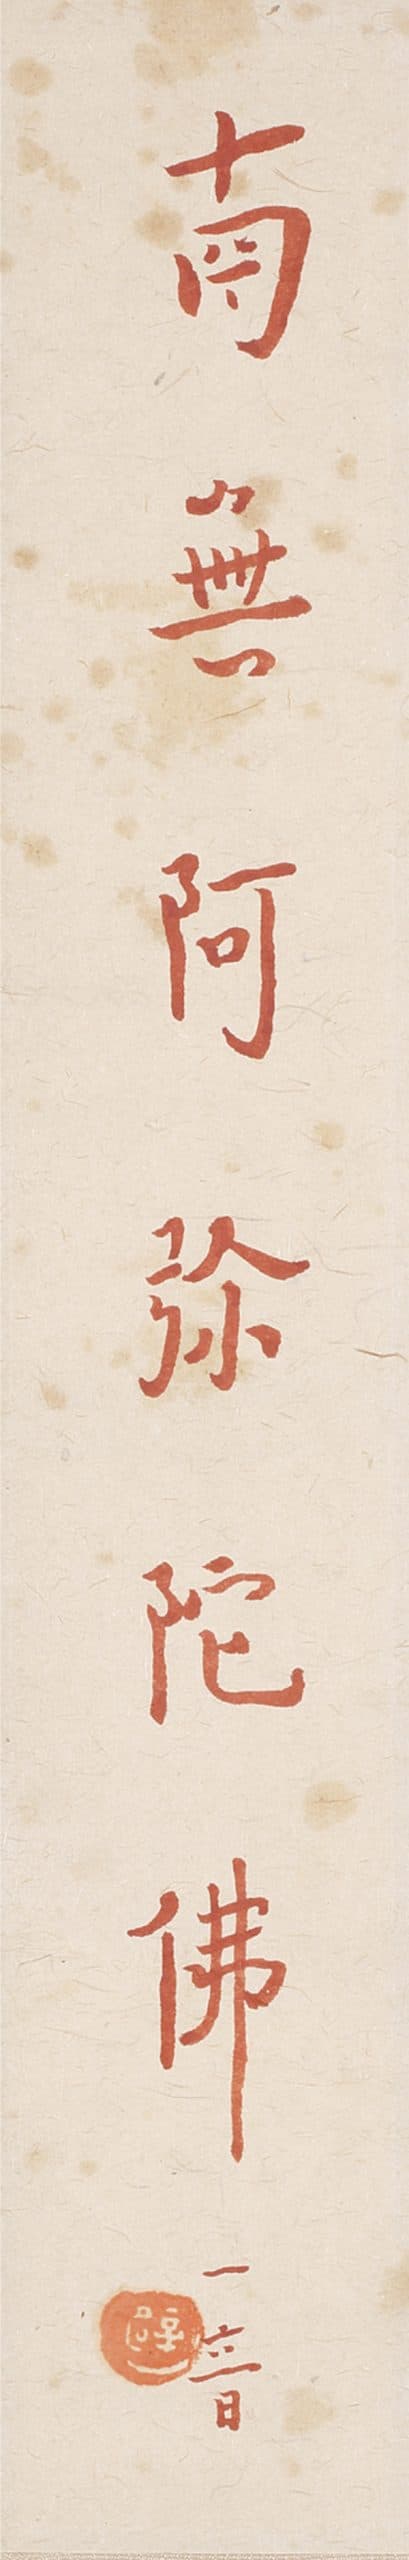 南無阿弥陀佛
一音